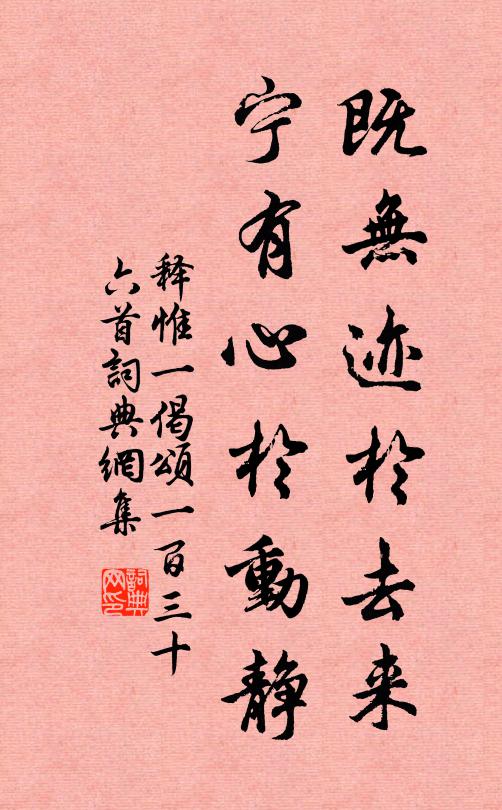 既無迹於去来
宁有心於動静
释惟一偈頌一百三十
六首詞典網集
詞典
网印